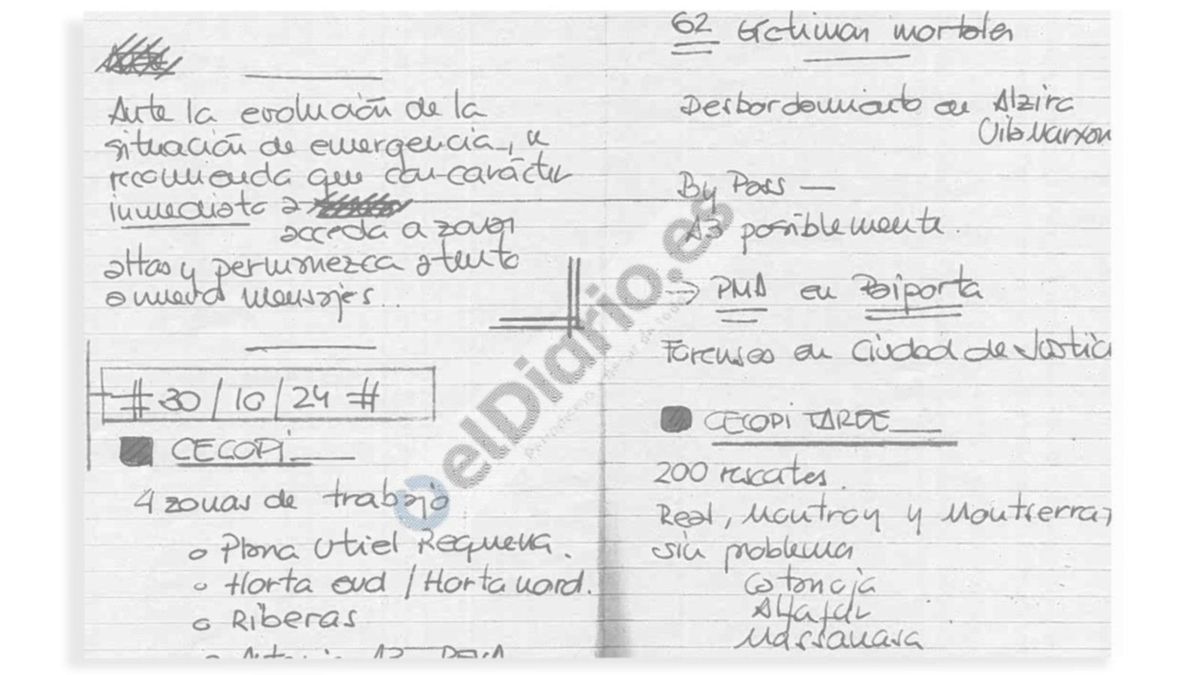 Ante la evolución de la
situación de emergencia, se
recomienda que con carácter
inmediato a
acceda a zonas
altas y permanezca atento
a nuevos mensajes..
# 30/10/24 #
CECOPI
4 zonas de trabajo
Plana Utiel Requena.
Horta sud / Horta nord.
Riberas
A3
62 víctimas mortales
Desbordamiento en Alzira
By Pass —
A3 posiblemente.
→ PMA en Paiporta
Forenses en Ciudad de Justicia
CECOPI TARDE
200 rescates.
Real, Montroy y Montserrat
sin problema
Catarroja
Alfafar
Massanasa
elDiario.es